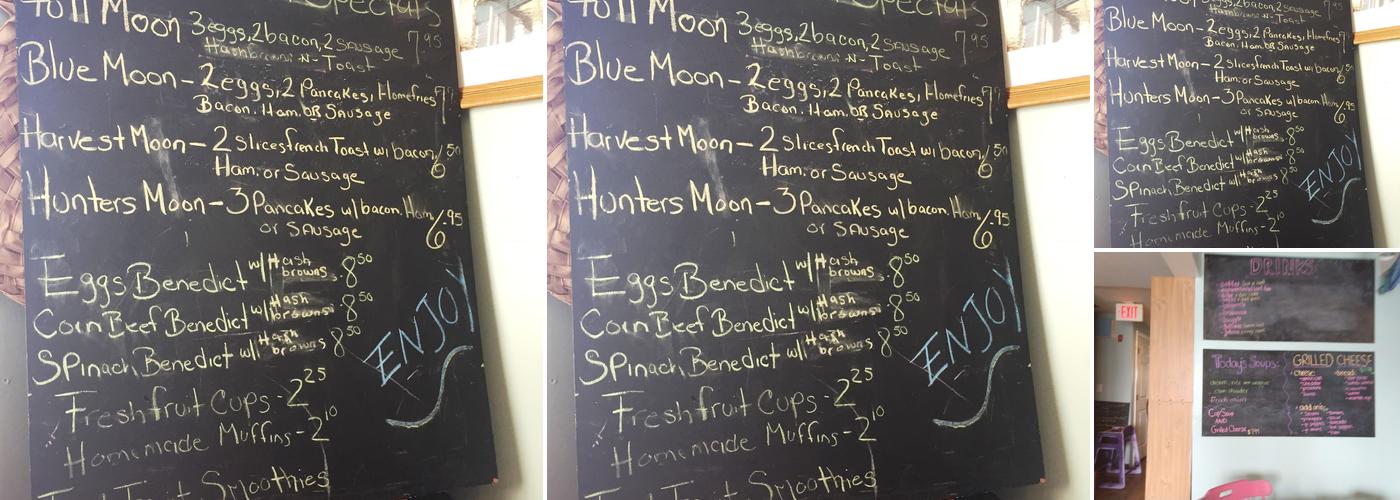 Specials
Full Moon 3eggs, 2bacon, 2 Sausage 7.95
Hashbrowns -N- Toast
Blue Moon - 2eggs, 2 Pancakes, Homefries
Bacon, Ham, or Sausage
Harvest Moon - 2 slices french Toast w/ bacon/ 6.50
Ham, or Sausage
Hunters Moon - 3 Pancakes w/ bacon, Ham/ 6.95
or Sausage
Eggs Benedict w/ Hash browns 8.50
Corn Beef Benedict w/ Hash browns 8.50
Spinach Benedict w/ Hash browns 8.50
ENJOY
Fresh fruit Cups - 2.25
Homemade Muffins - 2.10
Fruit Smoothies
Specials
Full Moon 3eggs, 2bacon, 2 Sausage 7.95
Hashbrowns -N- Toast
Blue Moon - 2eggs, 2 Pancakes, Homefries
Bacon, Ham, or Sausage
Harvest Moon - 2 slices french Toast w/ bacon/ 6.50
Ham, or Sausage
Hunters Moon - 3 Pancakes w/ bacon, Ham/ 6.95
or Sausage
Eggs Benedict w/ Hash browns 8.50
Corn Beef Benedict w/ Hash browns 8.50
Spinach Benedict w/ Hash browns 8.50
ENJOY
Fresh fruit Cups - 2.25
Homemade Muffins - 2.10
Fruit Smoothies
Hashbrowns -N- Toast
Blue Moon - 2eggs, 2 Pancakes, Homefries
Bacon, Ham, or Sausage
Harvest Moon - 2 slices french Toast w/ bacon/ 6.50
Ham, or Sausage
Hunters Moon - 3 Pancakes w/ bacon, Ham/ 6.95
Eggs Benedict w/ Hash browns 8.50
Corn Beef Benedict w/ Hash browns 8.50
Spinach Benedict w/ Hash browns 8.50
ENJOY
Fresh fruit Cups - 2.25
Homemade Muffins - 2.10
DRINKS
EXIT
Today's Soups:
Cup Soup
AND
Grilled Cheese
GRILLED CHEESE
cheese
bread
add ons